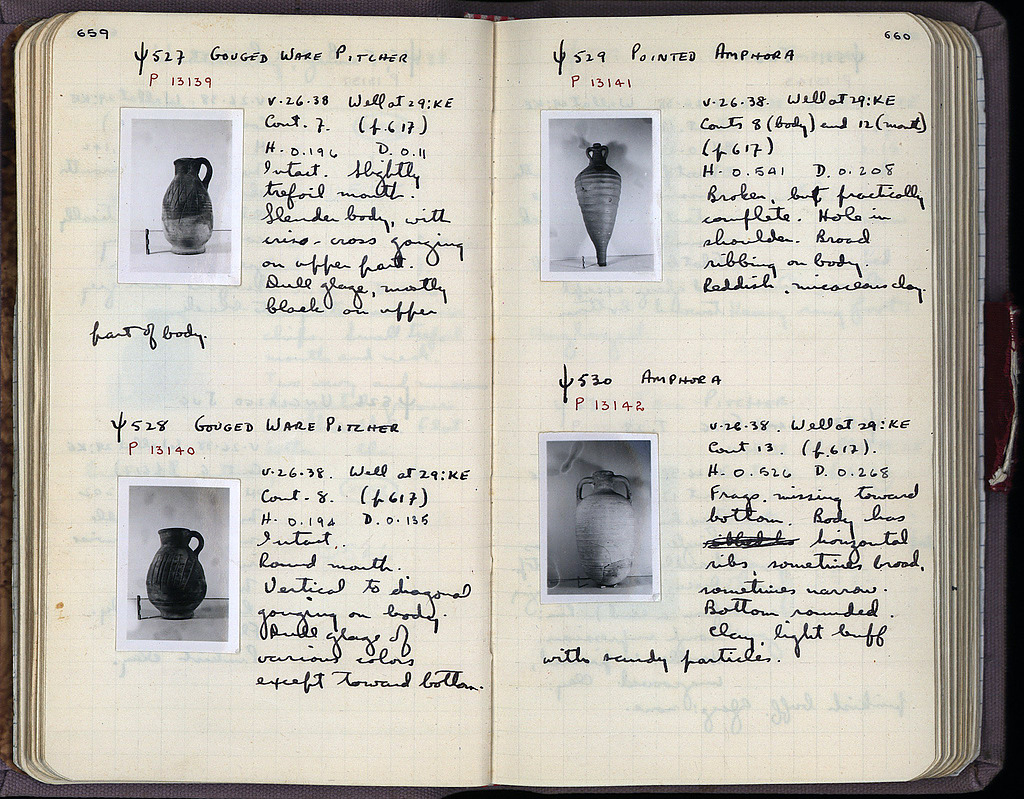 659
ψ527 GOUGED WARE PITCHER
P 13139
V-26-38 Well at 29:KE
Cont. 7. (p. 617)
H. 0.196 D. 0.11
Intact. Slightly
trefoil mouth.
Slender body, with
criss-cross gouging
on upper part.
Dull glaze, mostly
black on upper
part of body.
ψ528 GOUGED WARE PITCHER
P 13140
V-26-38. Well at 29:KE
Cont. 8. (p. 617)
H. 0.194 D. 0.135
Intact.
Round mouth.
Vertical to diagonal
gouging on body.
Dull glaze of
various colors
except toward bottom.
660
ψ529 POINTED AMPHORA
P 13141
V-26-38. Well at 29:KE
Conts 8 (body) and 12 (mouth)
(p. 617)
H. 0.541 D. 0.208
Broken, but practically
complete. Hole in
shoulder. Broad
ribbing on body.
Reddish, micaceous clay.
ψ530 AMPHORA
P 13142
V-26-38. Well at 29:KE
Cont 13. (p. 617).
H. 0.526 D. 0.268
Frags. missing toward
bottom. Body has
horizontal
ribs, sometimes broad,
sometimes narrow.
Bottom rounded.
Clay, light buff
with sandy particles.